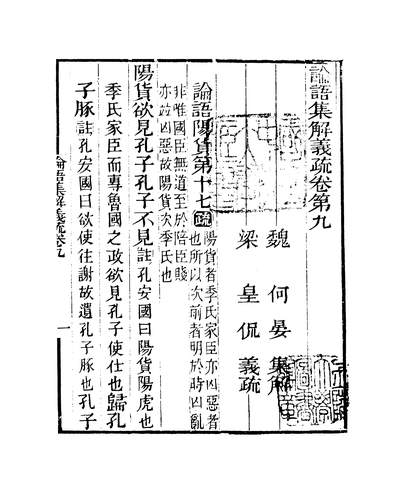 論語集解義疏卷第九
魏 何晏 集解
梁 皇侃 義疏
論語陽貨第十七 疏 陽貨者季氏家臣亦凶惡者
也所以次前者明於時凶亂
非唯國臣無道至於陪臣賤
亦竝凶惡故陽貨次季氏也
陽貨欲見孔子孔子不見註孔安國曰陽貨陽虎也
季氏家臣而專魯國之政欲見孔子使仕也歸孔
子豚註孔安國曰欲使往謝故遺孔子豚也孔子
論語集解義疏卷九
一